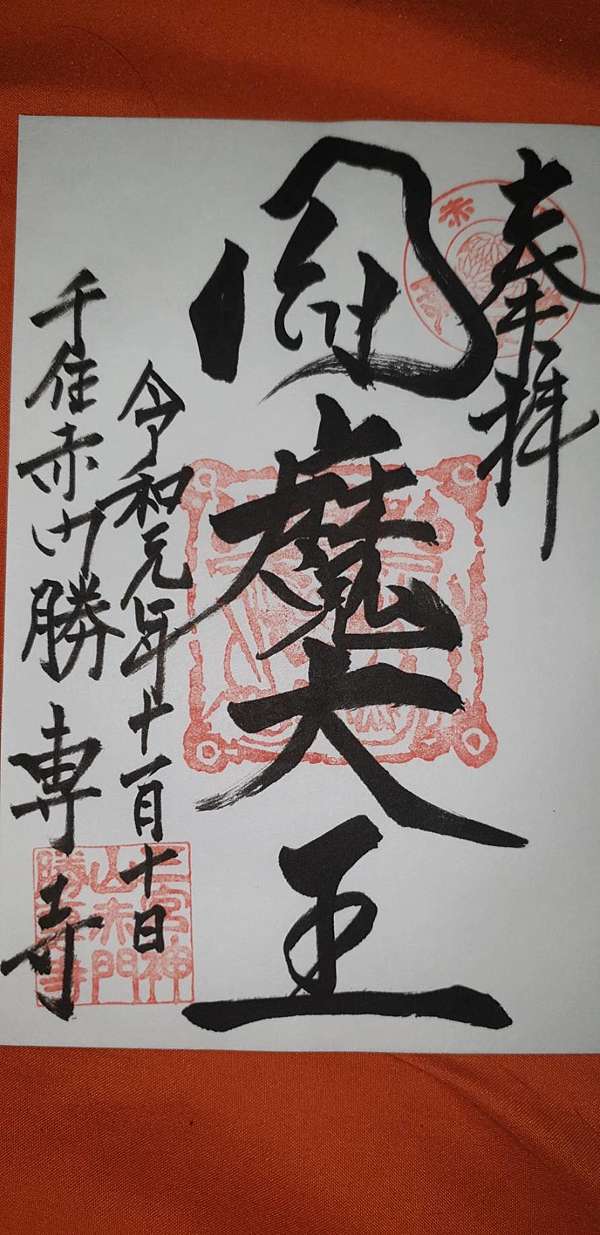 奉拝
閻魔大王
令和元年十一月十日
千住赤門勝専寺
三宮神
山赤門
勝専寺
赤